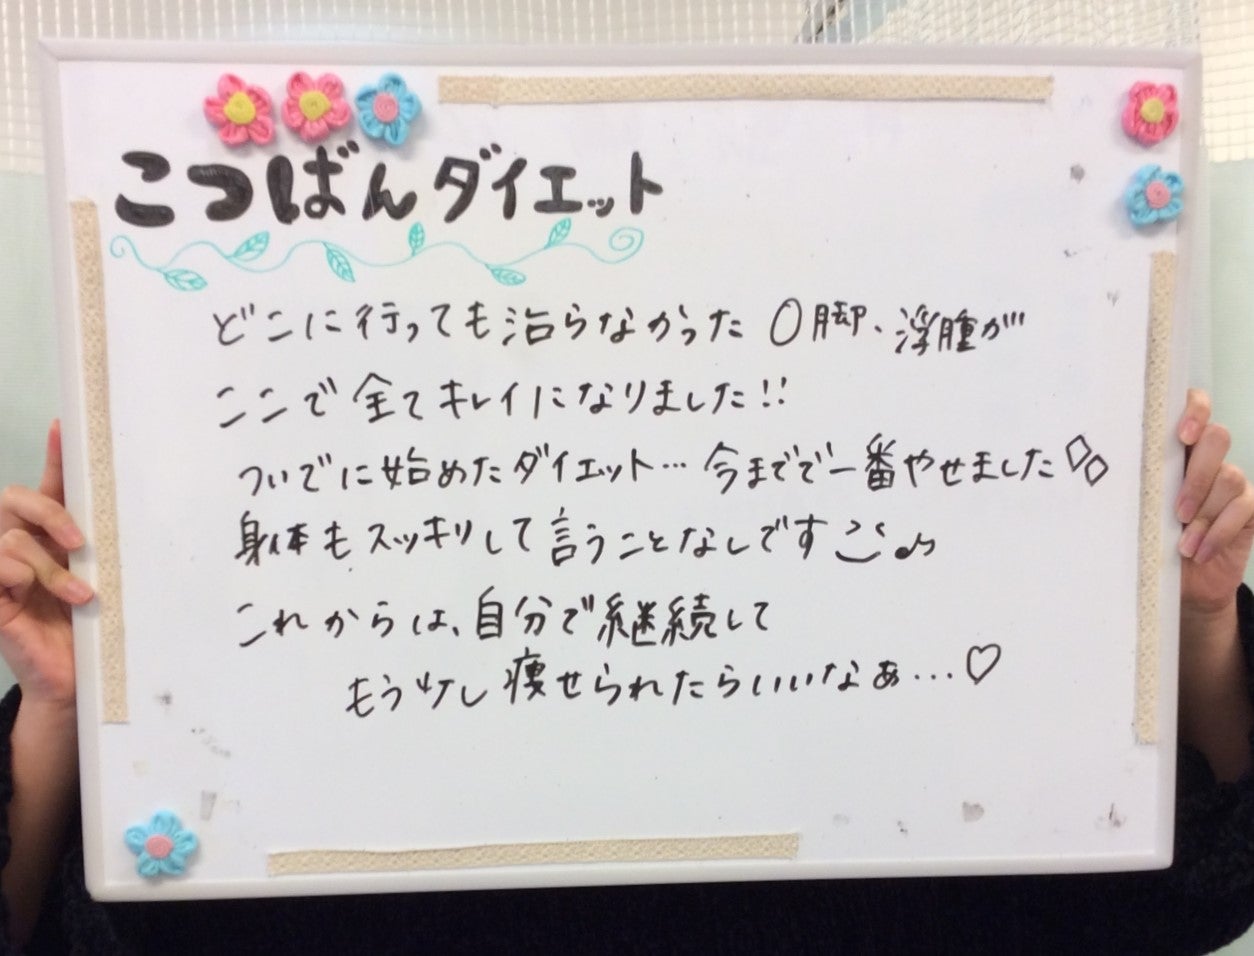 こつばんダイエット
どこに行っても治らなかった O脚、浮腫が
ここで全てキレイになりました!!
ついでに始めたダイエット… 今までで一番やせました
身体もスッキリして言うことなしです♪
これからは、自分で継続して
もう少し痩せられたらいいなぁ…♡